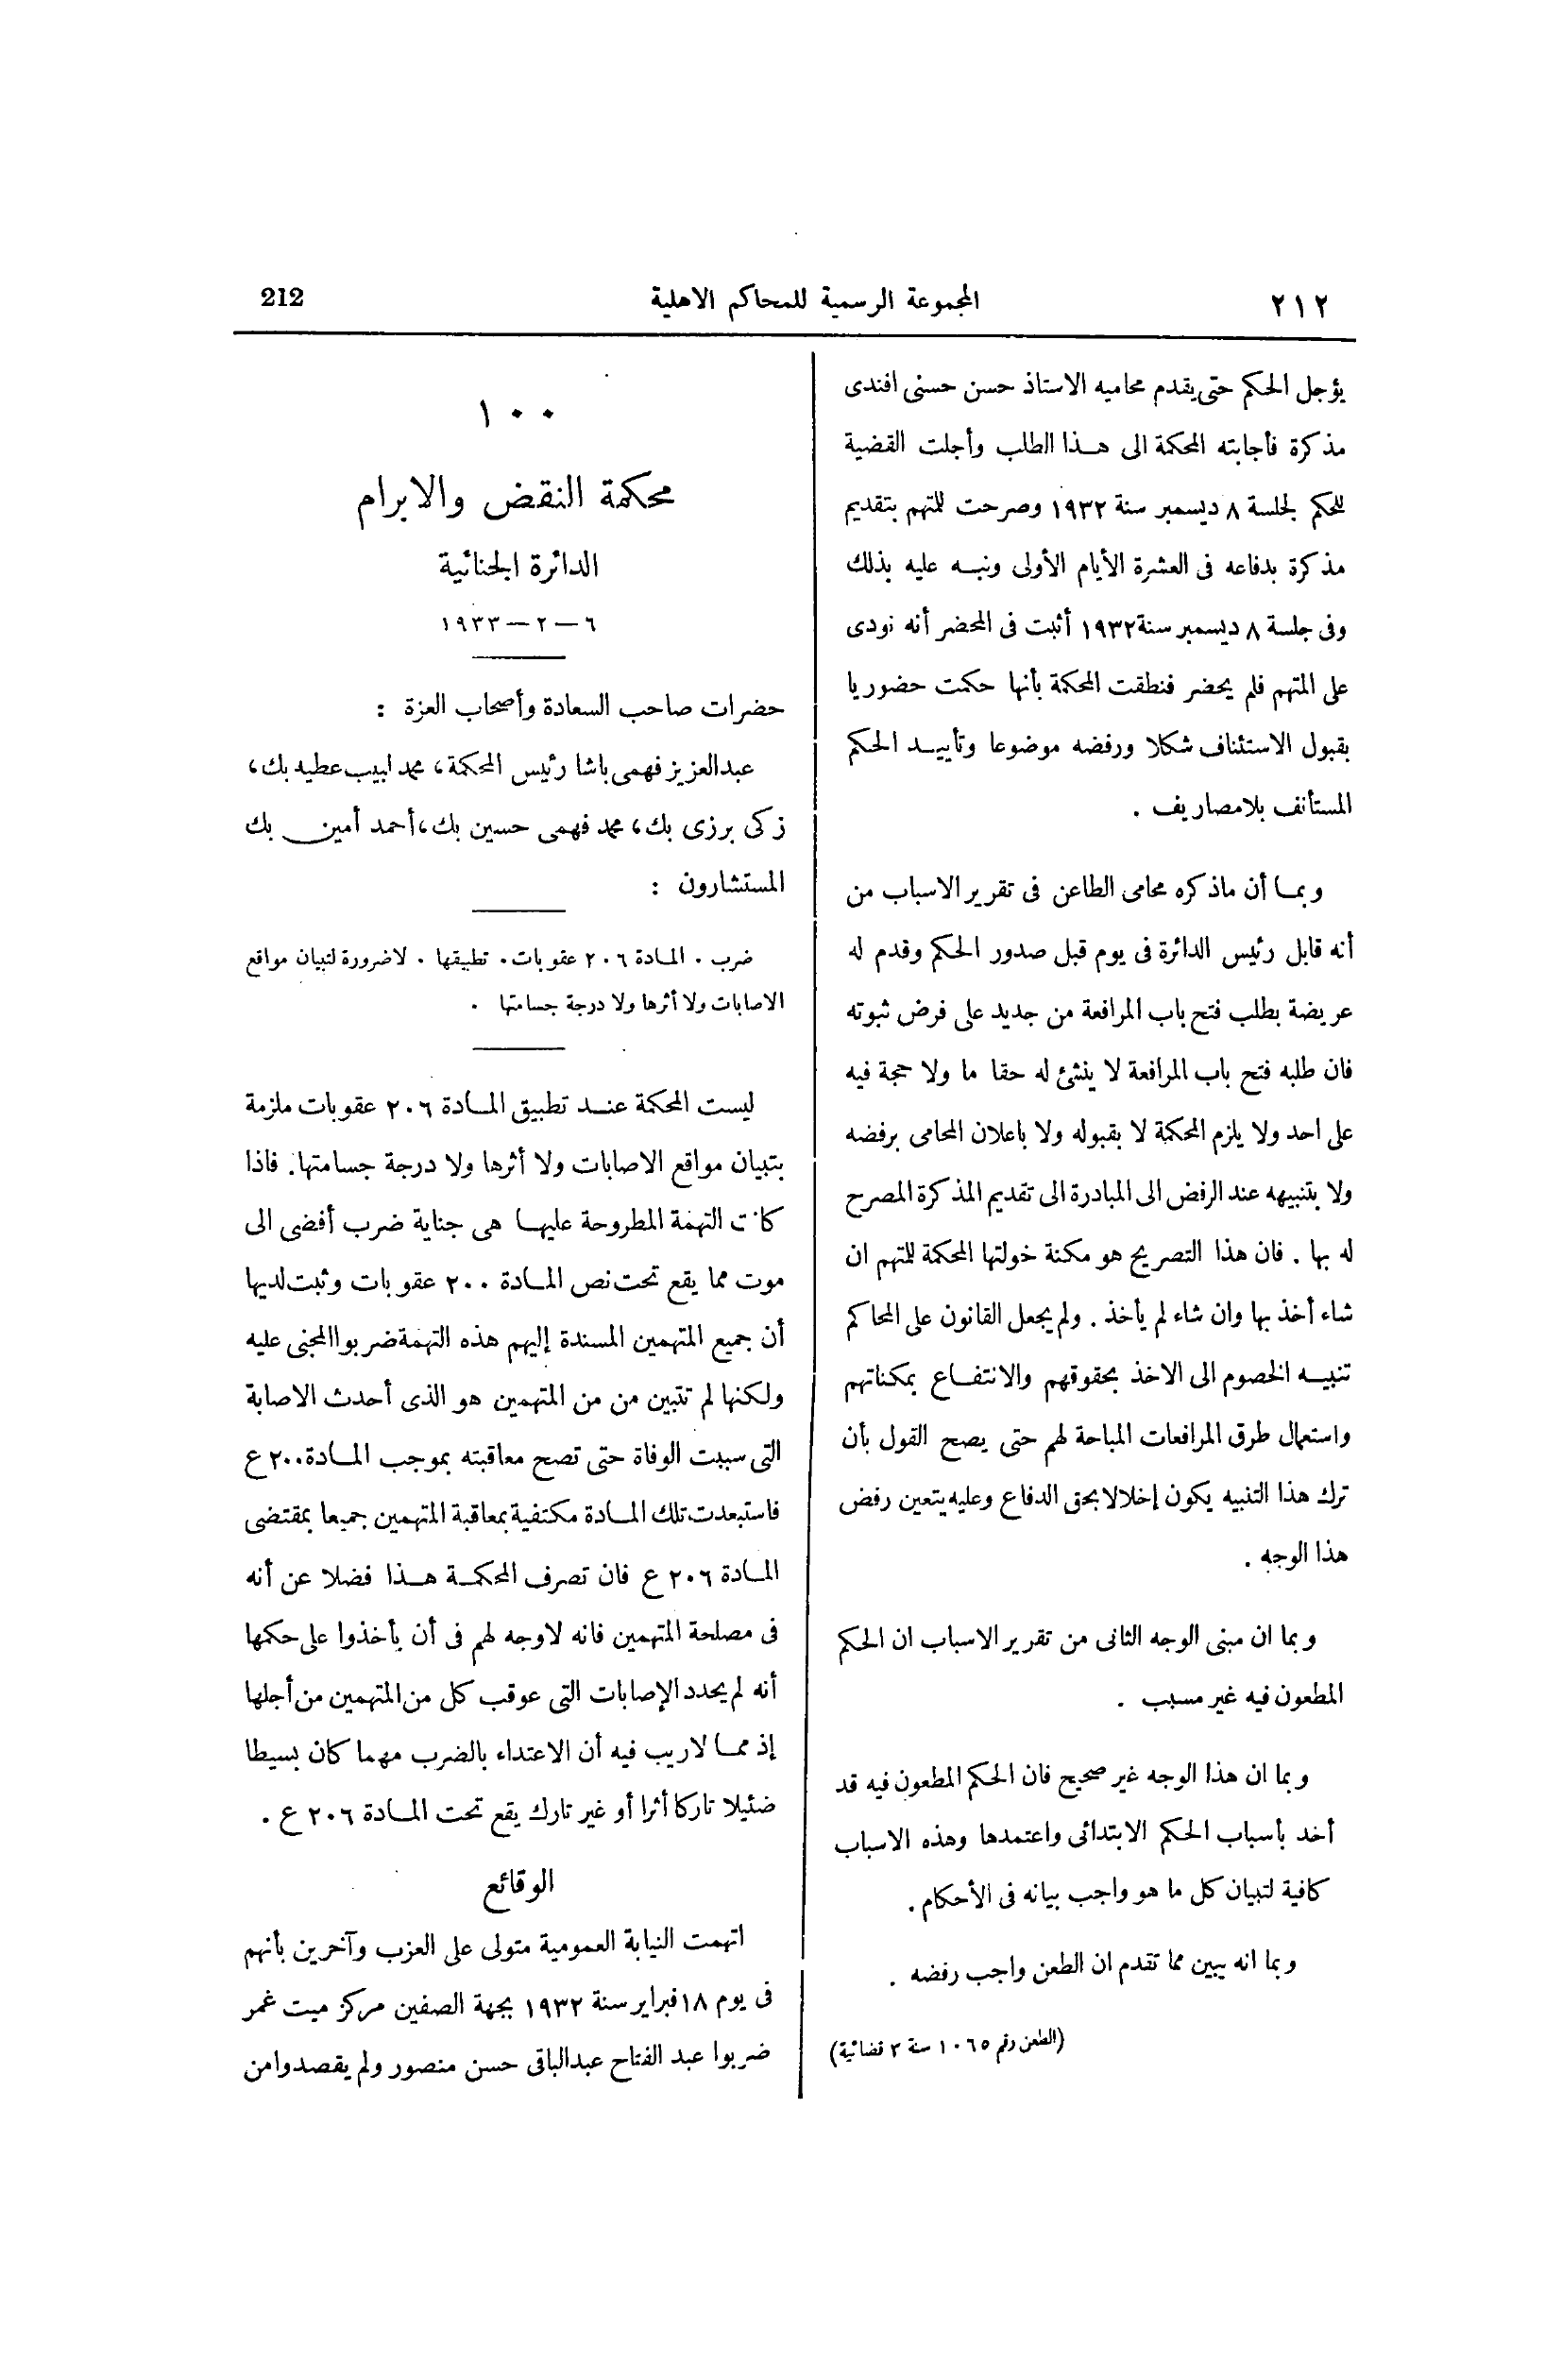 ٢١٢
المجموعة الرسمية للمحاكم الاهلية
212
يؤجل الحكم حتى يقدم محاميه الاستاذ حسن حسنى افندى
مذكرة فأجابته المحكمة الى هذا الطلب وأجلت القضية
للحكم لجلسة ٨ ديسمبر سنة ١٩٣٢ وصرحت للمتهم بتقديم
مذكرة بدفاعه فى العشرة الأيام الأولى ونبه عليه بذلك
وفى جلسة ٨ ديسمبر سنة ١٩٣٢ أثبت فى المحضر أنه نودى
على المتهم فلم يحضر فنطقت المحكمة بأنها حكمت حضوريا
بقبول الاستئناف شكلا ورفضه موضوعا وتأييد الحكم
المستأنف بلا مصاريف .
وبما أن ماذكره محامى الطاعن فى تقرير الاسباب من
أنه قابل رئيس الدائرة فى يوم قبل صدور الحكم وقدم له
عريضة بطلب فتح باب المرافعة من جديد على فرض ثبوته
فان طلبه فتح باب المرافعة لا ينشئ له حقا ما ولا حجة فيه
على احد ولا يلزم المحكمة لا بقبوله ولا باعلان المحامى برفضه
ولا بتنبيهه عند الرفض الى المبادرة الى تقديم المذكرة المصرح
له بها . فان هذا التصريح هو مكنة خولتها المحكمة للمتهم ان
شاء أخذ بها وان شاء لم يأخذ . ولم يجعل القانون على المحاكم
تنبيه الخصوم الى الاخذ بحقوقهم والانتفاع بمكناتهم
واستعمال طرق المرافعات المباحة لهم حتى يصح القول بأن
ترك هذا التنبيه يكون إخلالا بحق الدفاع وعليه يتعين رفض
هذا الوجه .
وبما ان مبنى الوجه الثانى من تقرير الاسباب ان الحكم
المطعون فيه غير مسبب .
وبما ان هذا الوجه غير صحيح فان الحكم المطعون فيه قد
أخد بأسباب الحكم الابتدائى واعتمدها وهذه الاسباب
كافية لتبيان كل ما هو واجب بيانه فى الأحكام .
وبما انه يبين مما تقدم ان الطعن واجب رفضه .
(الطعن رقم ١٠٦٥ سنة ٣ قضائية)
١٠٠
محكمة النقض والابرام
الدائرة الجنائية
٦ — ٢ — ١٩٣٣
حضرات صاحب السعادة وأصحاب العزة :
عبدالعزيز فهمى باشا رئيس المحكمة، محمد لبيب عطيه بك،
زكى برزى بك، محمد فهمى حسين بك، أحمد أمين بك
المستشارون :
ضرب . المادة ٢٠٦ عقوبات . تطبيقها . لاضرورة لتبيان مواقع
الاصابات ولا أثرها ولا درجة جسامتها .
ليست المحكمة عند تطبيق المادة ٢٠٦ عقوبات ملزمة
بتبيان مواقع الاصابات ولا أثرها ولا درجة جسامتها. فاذا
كانت التهمة المطروحة عليها هى جناية ضرب أفضى الى
موت مما يقع تحت نص المادة ٢٠٠ عقوبات وثبت لديها
أن جميع المتهمين المسندة إليهم هذه التهمة ضربوا المجنى عليه
ولكنها لم تتبين من من المتهمين هو الذى أحدث الاصابة
التى سببت الوفاة حتى تصح معاقبته بموجب المادة ٢٠٠ ع
فاستبعدت تلك المادة مكتفية بمعاقبة المتهمين جميعا بمقتضى
المادة ٢٠٦ ع فان تصرف المحكمة هذا فضلا عن أنه
فى مصلحة المتهمين فانه لاوجه لهم فى أن يأخذوا على حكمها
أنه لم يحدد الإصابات التى عوقب كل من المتهمين من أجلها
إذ مما لاريب فيه أن الاعتداء بالضرب مهما كان بسيطا
ضئيلا تاركا أثرا أو غير تارك يقع تحت المادة ٢٠٦ ع .
الوقائع
اتهمت النيابة العمومية متولى على العزب وآخرين بأنهم
فى يوم ١٨ فبراير سنة ١٩٣٢ بجهة الصفين مركز ميت غمر
ضربوا عبد الفتاح عبدالباقى حسن منصور ولم يقصدوا من